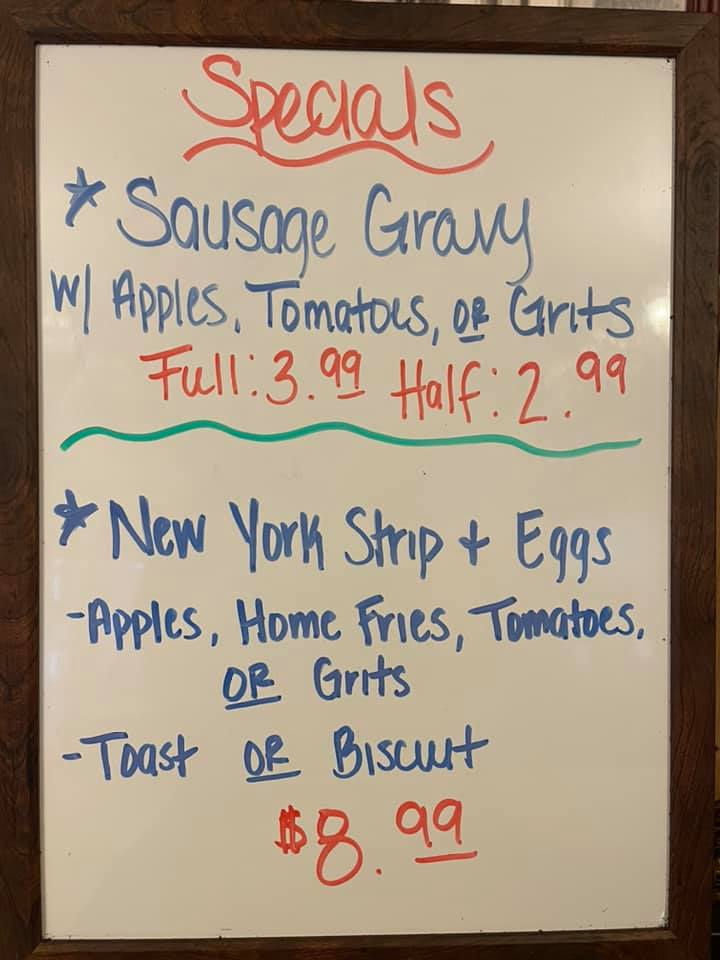 Specials
* Sausage Gravy
w/ Apples, Tomatoes, OR Grits
Full: 3.99 Half: 2.99
* New York Strip + Eggs
- Apples, Home Fries, Tomatoes,
OR Grits
- Toast OR Biscuit
$8.99